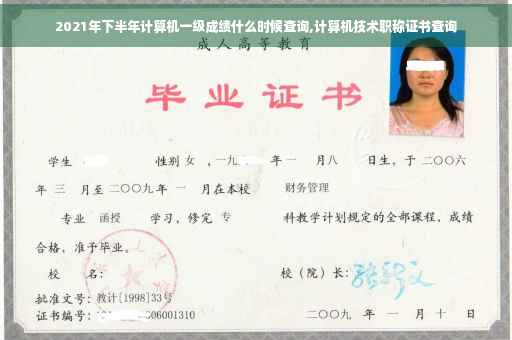 2021年下半年计算机一级成绩什么时候查询,计算机技术职称证书查询
成人高等教育
毕业证书
学生 性别 女 ,一九 年一 月八 日生，于二〇〇六
年 三 月至二〇〇九年 一 月在本校 财务管理
专业 函授 学习，修完 专 科教学计划规定的全部课程，成绩
合格，准予毕业。
校 名： 校（院）长：
批准文号：教计[1998]33号
证书编号： 06001310 二〇〇九 年 一 月 十 日